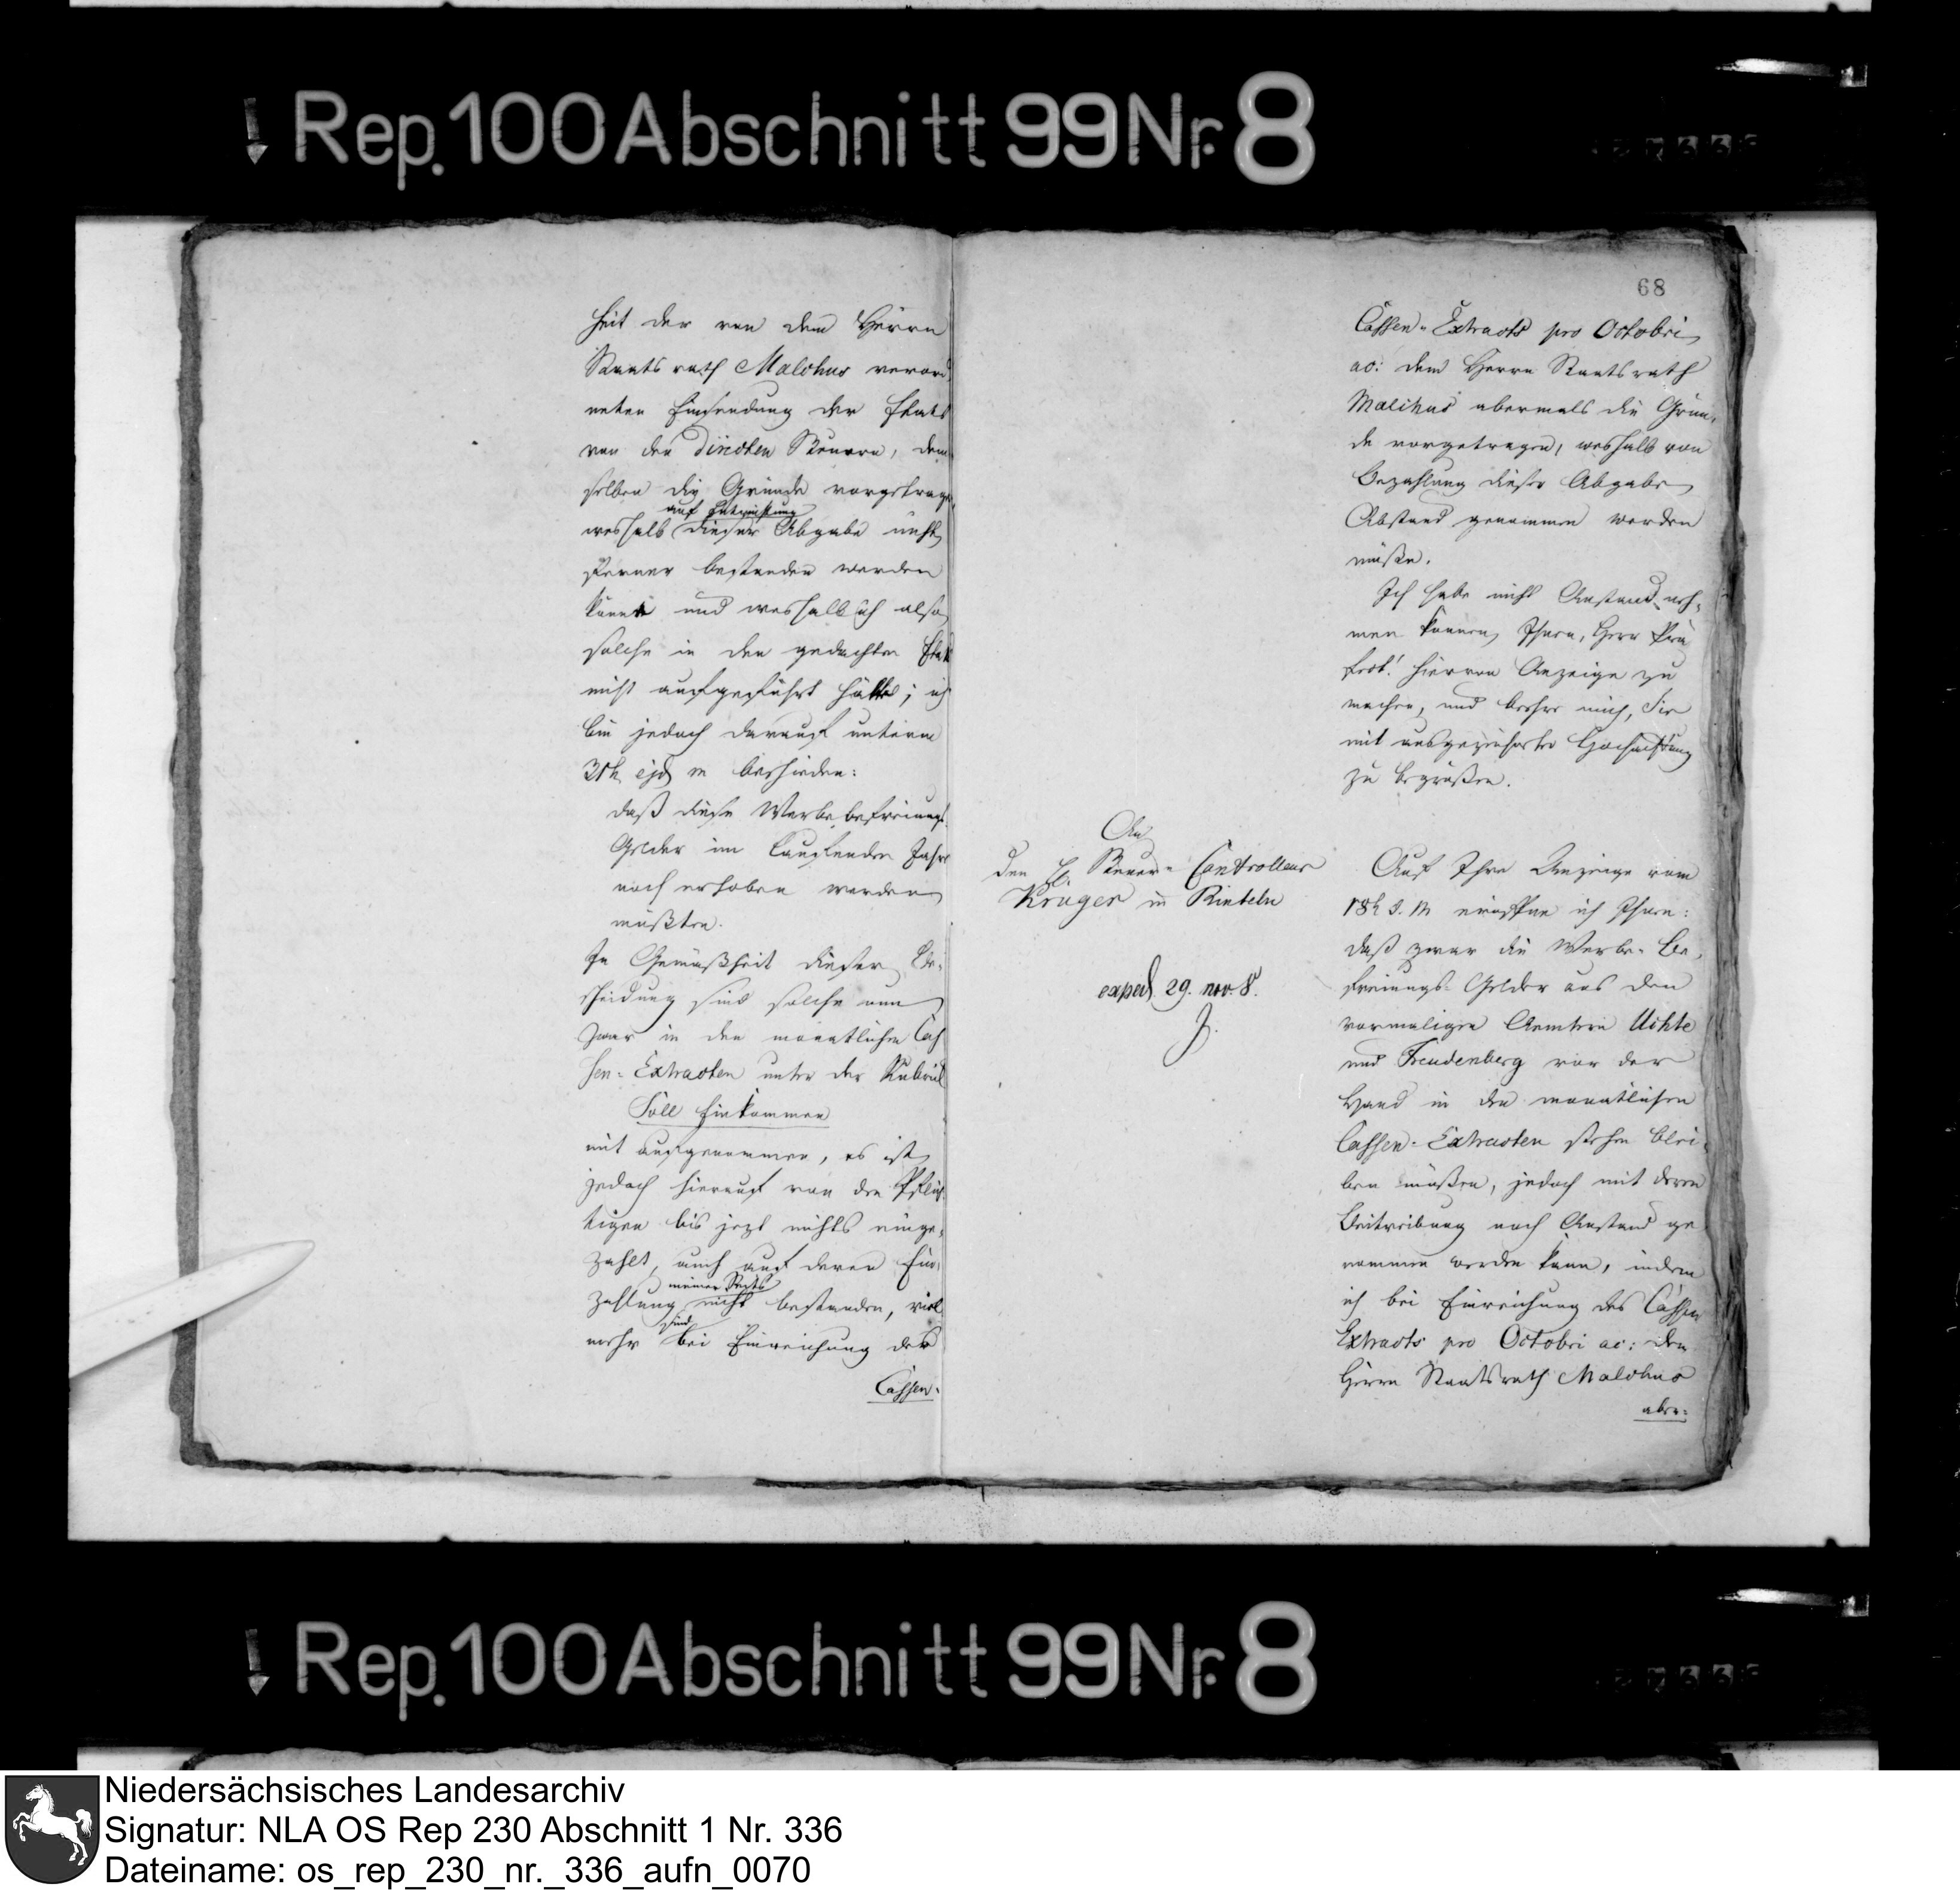 Rep. 100 Abschnitt 99 Nr. 8
heit der von dem Herrn
Staatsrath Malchus verord
neten Einsendung der Etats
von den directen Steuern, dem
selben die Gründe vorgetragen,
auf Entrichtung
weshalb dieser Abgabe nicht
ferner bestanden werden
könne und weshalb ich also
solche in den gedachten Etat
nicht aufgeführt hätte; ich
bin jedoch darauf unterm
31t ejd m beschieden:
daß diese Werbebefreiungs-
Gelder im laufenden Jahre
noch erhoben werden
müßten.
In Gemäßheit dieser Be-
scheidung sind solche nun
zwar in den monatlichen Cas
sen-Extracten unter der Rubrik
Soll Einkommen
mit aufgenommen, es ist
jedoch hierauf von den Pflich
tigen bis jezt nichts einge-
zahlt, auch auf deren Ein-
meiner Seits
zahlung nicht bestanden, viel
sind
mehr bei Einreichung des
Cassen-
68
Cassen-Extracts pro Octobri
ao: dem Herrn Staatsrath
Malchus abermals die Grün-
de vorgetragen, weshalb von
Bezahlung dieser Abgabe
Abstand genommen werden
müße.
Ich habe nicht Anstand neh-
men können, Ihnen, Herr Prä
fect! hiervon Anzeige zu
machen, und beehre mich, Sie
mit ausgezeichneter Hochachtung
zu begrüßen.
An
den H. Steuer-Controlleur
Krüger in Rinteln
exped. 29. nov. 8.
Auf Ihre Anzeige vom
18t d. M eröffne ich Ihnen:
daß zwar die Werbe-Be-
freiungs-Gelder aus den
vormaligen Aemtern Uchte
und Freudenberg vor der
Hand in den monatlichen
Cassen-Extracten stehen blei-
ben müßen, jedoch mit deren
Beitreibung noch Anstand ge
nommen werden kann, indem
ich bei Einreichung des Cassen
Extracts pro Octobri ac: dem
Herrn Staatsrath Malchus
aber-
Rep. 100 Abschnitt 99 Nr. 8
Niedersächsisches Landesarchiv
Signatur: NLA OS Rep 230 Abschnitt 1 Nr. 336
Dateiname: os_rep_230_nr._336_aufn_0070